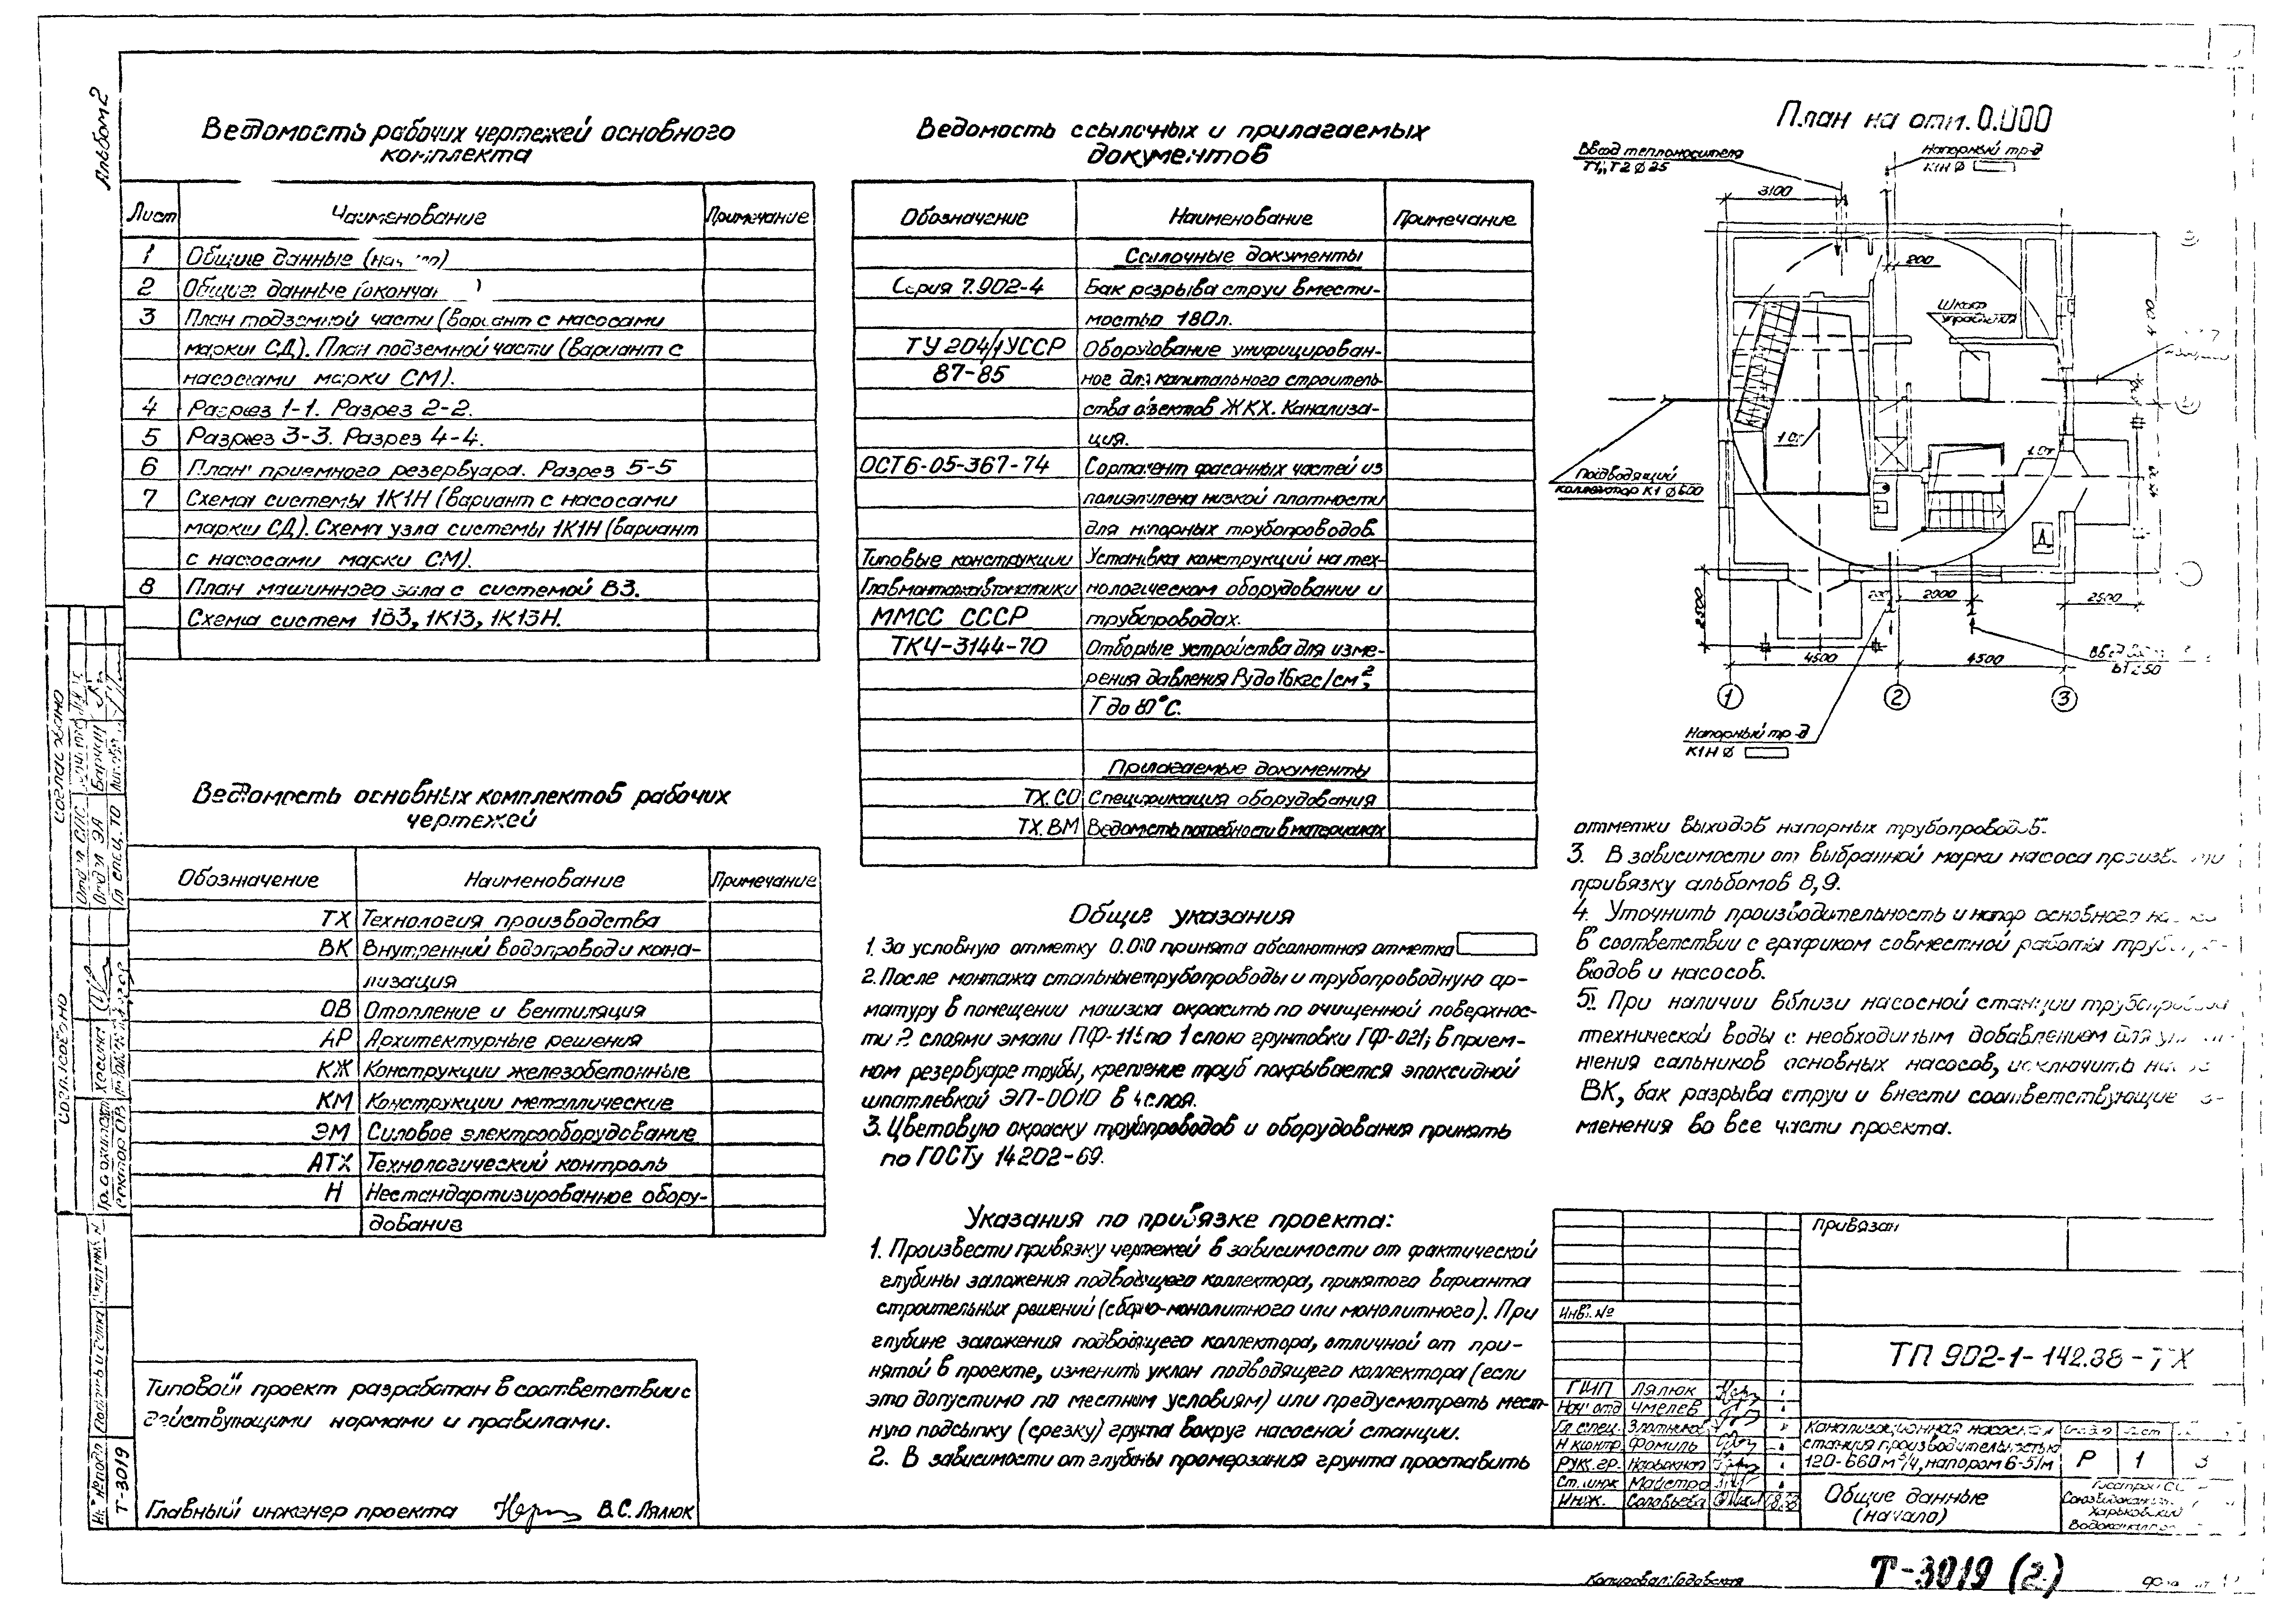 Альбом 2
Ведомость рабочих чертежей основного
комплекта
Лист Наименование Примечание
1 Общие данные
2 Общие данные
3 План подземной части (вариант с насосами
марки СД). План подземной части (вариант с
насосами марки СМ).
4 Разрез 1-1. Разрез 2-2.
5 Разрез 3-3. Разрез 4-4.
6 План приемного резервуара. Разрез 5-5
7 Схема системы 1К1Н (вариант с насосами
марки СД). Схема узла системы 1К1Н (вариант
с насосами марки СМ).
8 План машинного зала с системой В3.
Схема систем 1В3, 1К13, 1К13Н.
Ведомость основных комплектов рабочих
чертежей
Обозначение Наименование Примечание
ТХ Технология производства
ВК Внутренний водопровод и кана-
лизация
ОВ Отопление и вентиляция
АР Архитектурные решения
КЖ Конструкции железобетонные
КМ Конструкции металлические
ЭМ Силовое электрооборудование
АТХ Технологический контроль
Н Нестандартизированное обору-
дование
Типовой проект разработан в соответствии с
действующими нормами и правилами.
Главный инженер проекта В.С. Лялюк
Ведомость ссылочных и прилагаемых
документов
Обозначение Наименование Примечание
Ссылочные документы
Серия 7.902-4 Бак разрыва струи вмести-
мостью 180л.
ТУ 204/1УССР Оборудование унифицирован-
87-85 ное для капитального строитель-
ства объектов ЖКХ. Канализа-
ция.
ОСТ6-05-367-74 Сортамент фасонных частей из
полиэтилена низкой плотности
для напорных трубопроводов.
Типовые конструкции Установка конструкций на тех-
Главмонтажавтоматики нологическом оборудовании и
ММСС СССР трубопроводах.
ТКЧ-3144-70 Отборные устройства для изме-
рения давления Ру до 16кгс/см²,
Т до 80°С.
Прилагаемые документы
ТХ.СО Спецификация оборудования
ТХ.ВМ Ведомость потребности в материалах
Общие указания
1. За условную отметку 0.000 принята абсолютная отметка
2. После монтажа стальные трубопроводы и трубопроводную ар-
матуру в помещении машзала окрасить по очищенной поверхнос-
ти 2 слоями эмали ПФ-115 по 1 слою грунтовки ГФ-021; в прием-
ном резервуаре трубы, крепление труб покрывается эпоксидной
шпатлевкой ЭП-0010 в 4 слоя.
3. Цветовую окраску трубопроводов и оборудования принять
по ГОСТу 14202-69.
Указания по привязке проекта:
1. Произвести привязку чертежей в зависимости от фактической
глубины заложения подводящего коллектора, принятого варианта
строительных решений (сборно-монолитного или монолитного). При
глубине заложения подводящего коллектора, отличной от при-
нятой в проекте, изменить уклон подводящего коллектора (если
это допустимо по местным условиям) или предусмотреть мест-
ную подсыпку (срезку) грунта вокруг насосной станции.
2. В зависимости от глубины промерзания грунта проставить
План на отм. 0.000
Ввод теплоносителя
Т1, Т2 ø 25
Напорный тр-д
К1Н ø
3100
200
Шкаф
управления
Подводящий
коллектор К1 ø600
2000
2500
4500 4500
1 2 3
Напорный тр-д
К1Н ø
отметки выходов напорных трубопроводов.
3. В зависимости от выбранной марки насоса
привязку альбомов 8,9.
4. Уточнить производительность и напор основного
в соответствии с графиком совместной работы
водов и насосов.
5. При наличии вблизи насосной станции трубопровода
технической воды с необходимым добавлением для
нения сальников основных насосов, исключить
ВК, бак разрыва струи и внести соответствующие
менения во все части проекта.
Привязан
Инв. №
ТП 902-1-142.88-ТХ
ГИП Лялюк
Нач. отд Чмелев
Гл. спец. Злотников
Н контр Фомиль
Рук. гр.
Ст. инж Майстро
Инж. Соловьева
Канализационная насосная
станция производительностью
120-660 м³/ч, напором 6-51м
Р 1 3
Общие данные
(начало)
Харьковский
Т-3019
Копировал:
Т-3019 (2)